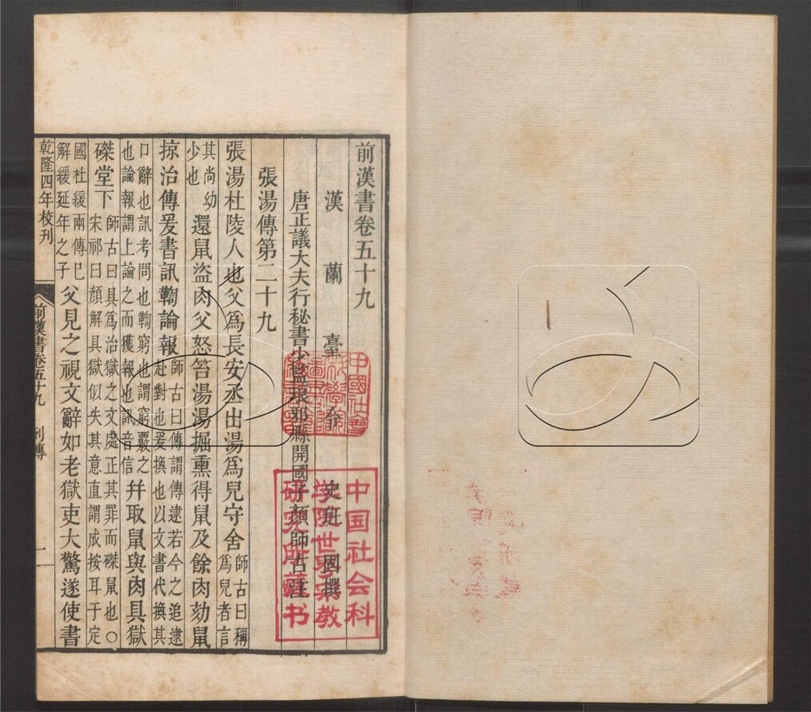 前漢書卷五十九
漢蘭臺令史班固撰
唐正議大夫行秘書少監琅邪縣開國子顏師古注
張湯傳第二十九
張湯杜陵人也父爲長安丞出湯爲兒守舍師古曰稱爲兒者言
其尚幼少也還鼠盜肉父怒笞湯湯掘熏得鼠及餘肉劾鼠
掠治傳爰書訊鞫論報師古曰傳謂傳逮若今之追逮赴對也爰換也以文書代換其
口辭也訊考問也鞫窮也謂窮覈之也論報謂上論之而獲報也訊音信幷取鼠與肉具獄
磔堂下師古曰具爲治獄之文處正其罪而磔鼠也○宋祁曰顏解具獄似失其意直謂成按耳于定
國杜緩兩傳已解緩延年之子父見之視文辭如老獄吏大驚遂使書
乾隆四年校刊
前漢書卷五十九
列傳
一
中国社会科
学院世界宗教
研究所藏书